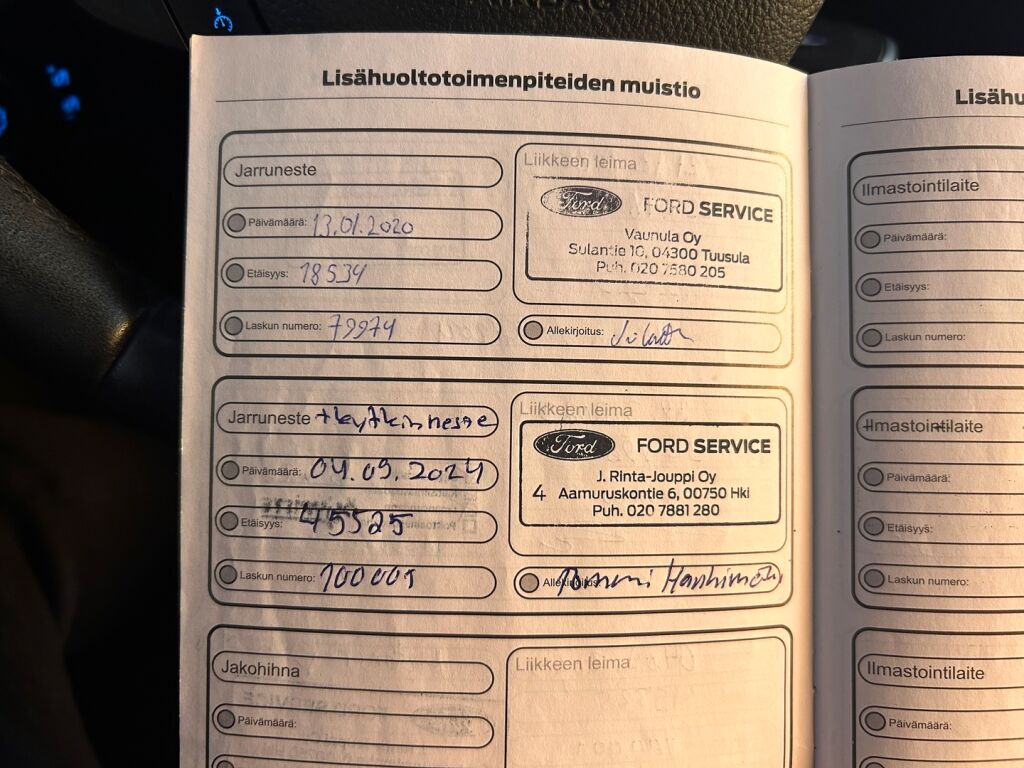 AIRBAG
Lisähuoltotoimenpiteiden muistio
Jarruneste
Päivämäärä: 13.01.2020
Etäisyys: 18534
Laskun numero: 79974
Liikkeen leima
Ford FORD SERVICE
Vaunula Oy
Sulantie 10, 04300 Tuusula
Puh. 020 7580 205
Allekirjoitus:
Jarruneste + kytkinneste
Päivämäärä: 04.09.2024
Etäisyys: 45525
Laskun numero: 100001
Liikkeen leima
Ford FORD SERVICE
J. Rinta-Jouppi Oy
4 Aamuruskontie 6, 00750 Hki
Puh. 020 7881 280
Allekirjoitus:
Jakohihna
Päivämäärä:
Liikkeen leima
Lisähu
Ilmastointilaite
Päivämäärä:
Etäisyys:
Laskun numero:
Ilmastointilaite
Päivämäärä:
Etäisyys:
Laskun numero:
Ilmastointilaite
Päivämäärä: